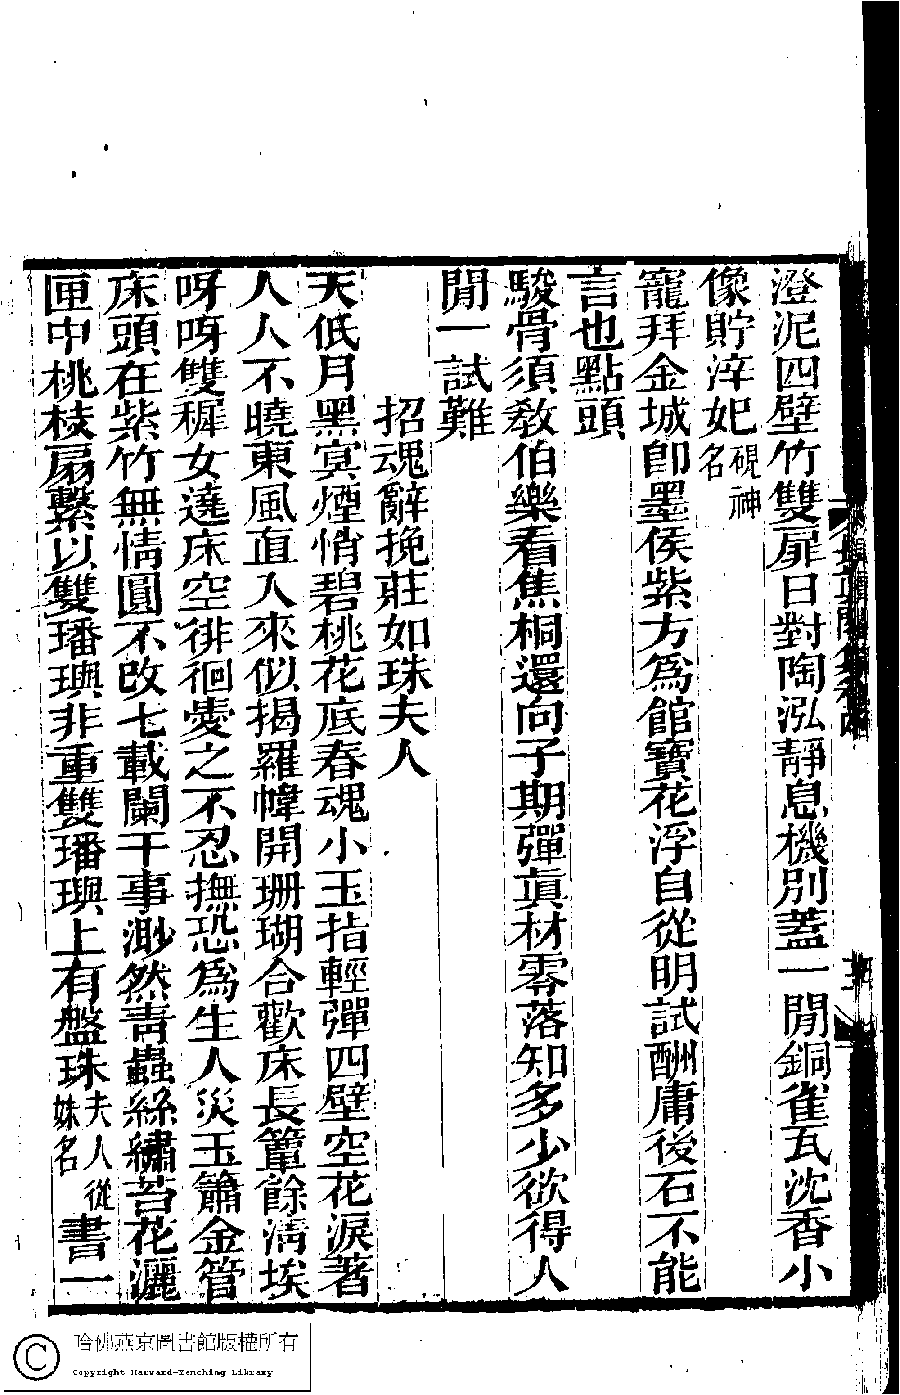 澄泥四壁竹雙扉日對陶泓靜息機別蓋一閒銅雀瓦沈香小
像貯淬妃硯神名
寵拜金城卽墨侯紫方爲館寶花浮自從明試酬庸後石不能
言也點頭
駿骨須敎伯樂看焦桐還向子期彈眞材零落知多少欲得人
閒一試難
招魂辭挽莊如珠夫人
天低月黑寞煙悄碧桃花底春魂小玉指輕彈四壁空花淚著
人人不曉東風直入來似揭羅幃開珊瑚合歡床長簟餘淸埃
呀呀雙穉女遶床空徘徊愛之不忍撫恐爲生人災玉簫金管
床頭在紫竹無情圓不改七載闌干事渺然靑蟲絲繡苔花灑
匣中桃枝扇繫以雙璠璵非重雙璠璵上有盤珠夫人從妹名書一
哈佛燕京圖書館版權所有
Copyright Harvard-Yenching Library